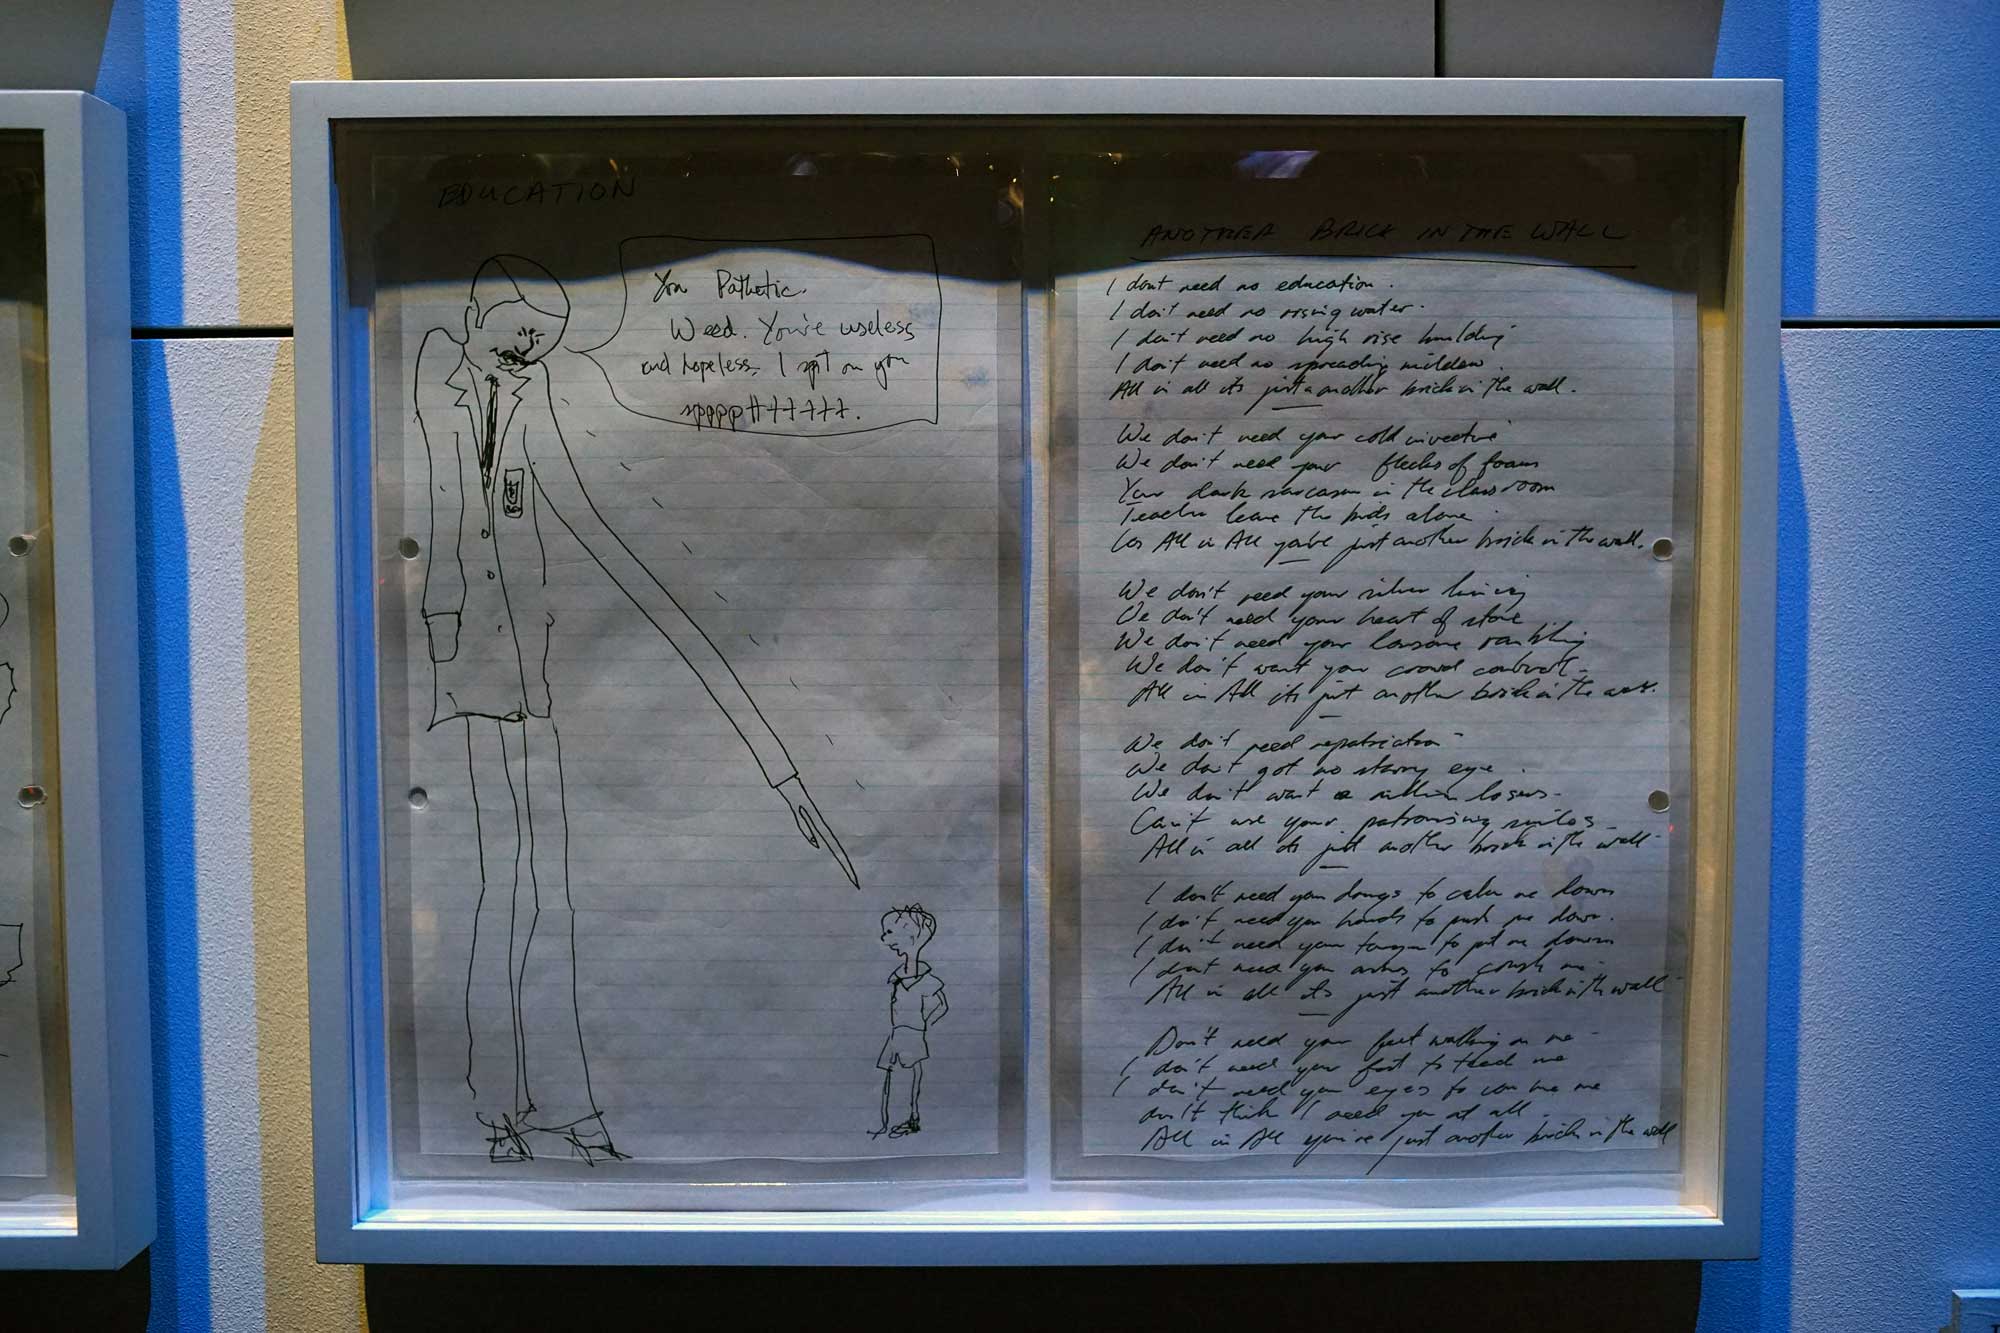 EDUCATION
You Pathetic.
Weed. You're useless
and hopeless, I spit on you
sppppttttttt.
ANOTHER BRICK IN THE WALL
I dont need no education.
I don't need no rising water.
I don't need no high rise building
I don't need no spreading mildew.
All in all its just another brick in the wall.
We don't need your cold invective
We don't need your flecks of foam
Your dark sarcasm in the classroom
Teacher leave the kids alone
Cos All in All you're just another brick in the wall.
We don't need your silver lining
We don't need your heart of stone
We don't need your
We don't want your crowd control
All in All its just another brick in the wall.
We don't need repatriation
We don't got no starry eye.
We don't want a million losers
Can't use your patronising smiles
All in all its just another brick in the wall
I don't need your drugs to calm me down
I don't need your hands to push me down.
I don't need your tongue to put me down
I dont need your ashes to me
All in all its just another brick in the wall
Don't need your feet walking on me
I don't need your food to feed me
I don't need your eyes to me
don't think I need you at all.
All in All you're just another brick in the wall